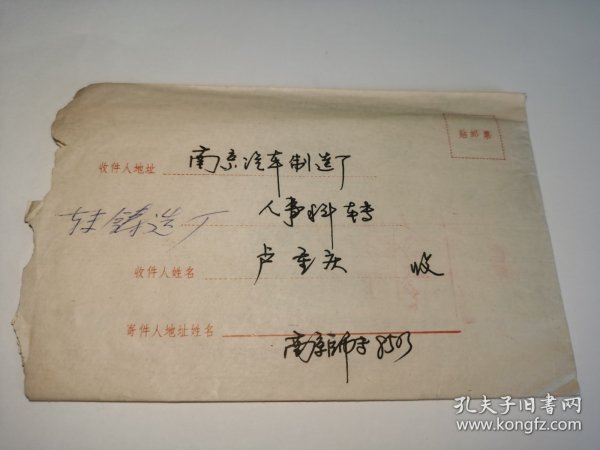 贴邮票
收件人地址 南京汽车制造厂
转铸造厂 人事科转
收件人姓名 卢重庆 收
寄件人地址姓名
南京师专8503
孔夫子旧书网
www.kongfz.com